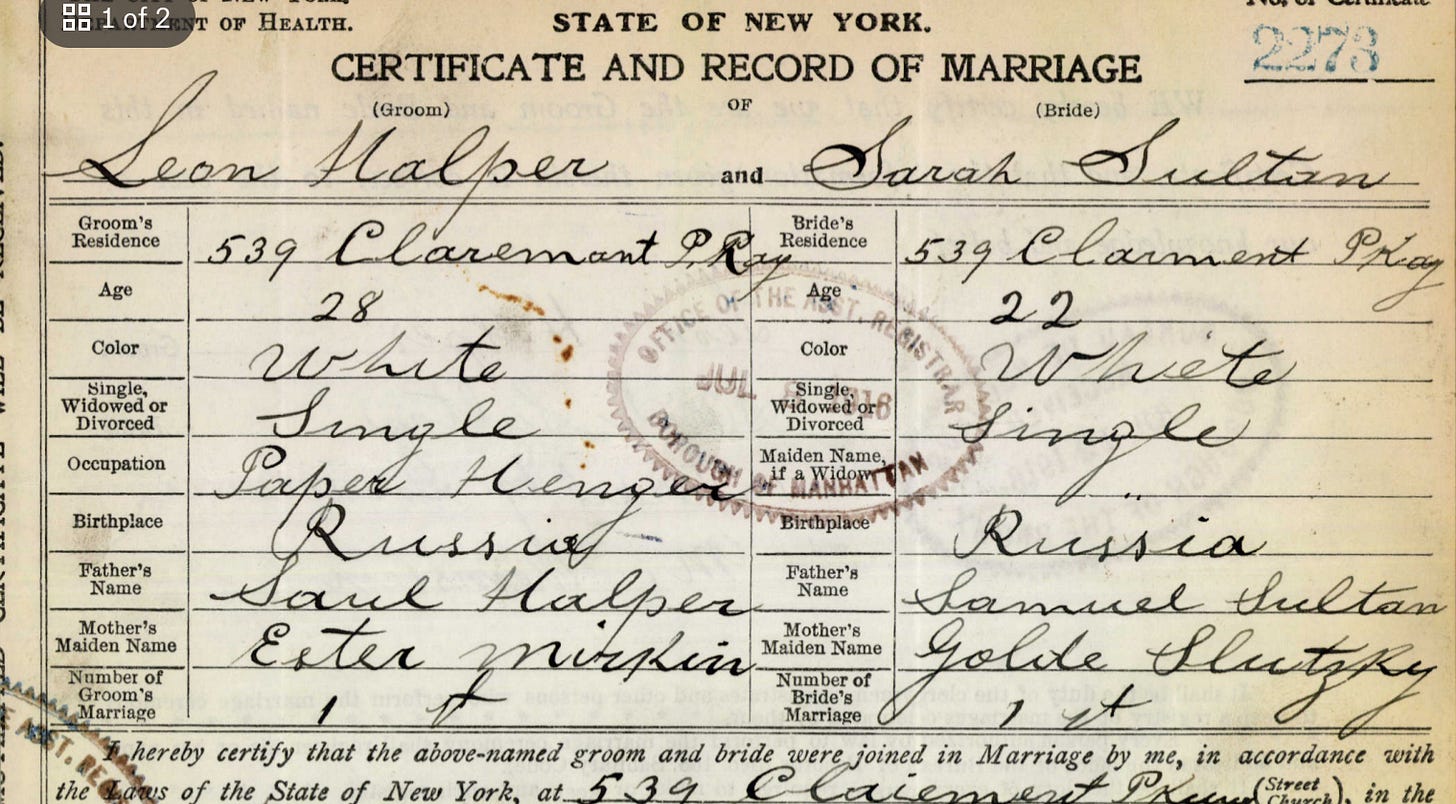 1 of 2
DEPARTMENT OF HEALTH.
STATE OF NEW YORK.
No. of Certificate
2273
CERTIFICATE AND RECORD OF MARRIAGE
(Groom) OF (Bride)
Leon Halper and Sarah Sultan
Groom's Residence 539 Claremont PKay Bride's Residence 539 Clarment PKay
Age 28 Age 22
Color White Color White
Single, Widowed or Divorced Single Single, Widowed or Divorced Single
Occupation Paper Henger Maiden Name, if a Widow "
Birthplace Russia Birthplace Russia
Father's Name Saul Halper Father's Name Samuel Sultan
Mother's Maiden Name Ester Mirkin Mother's Maiden Name Golde Slutzky
Number of Groom's Marriage 1 Number of Bride's Marriage 1st
OFFICE OF THE ASST. REGISTRAR
JUL 1916
BOROUGH OF MANHATTAN
I hereby certify that the above-named groom and bride were joined in Marriage by me, in accordance with
the Laws of the State of New York, at 539 Claremont (Street Church), in the